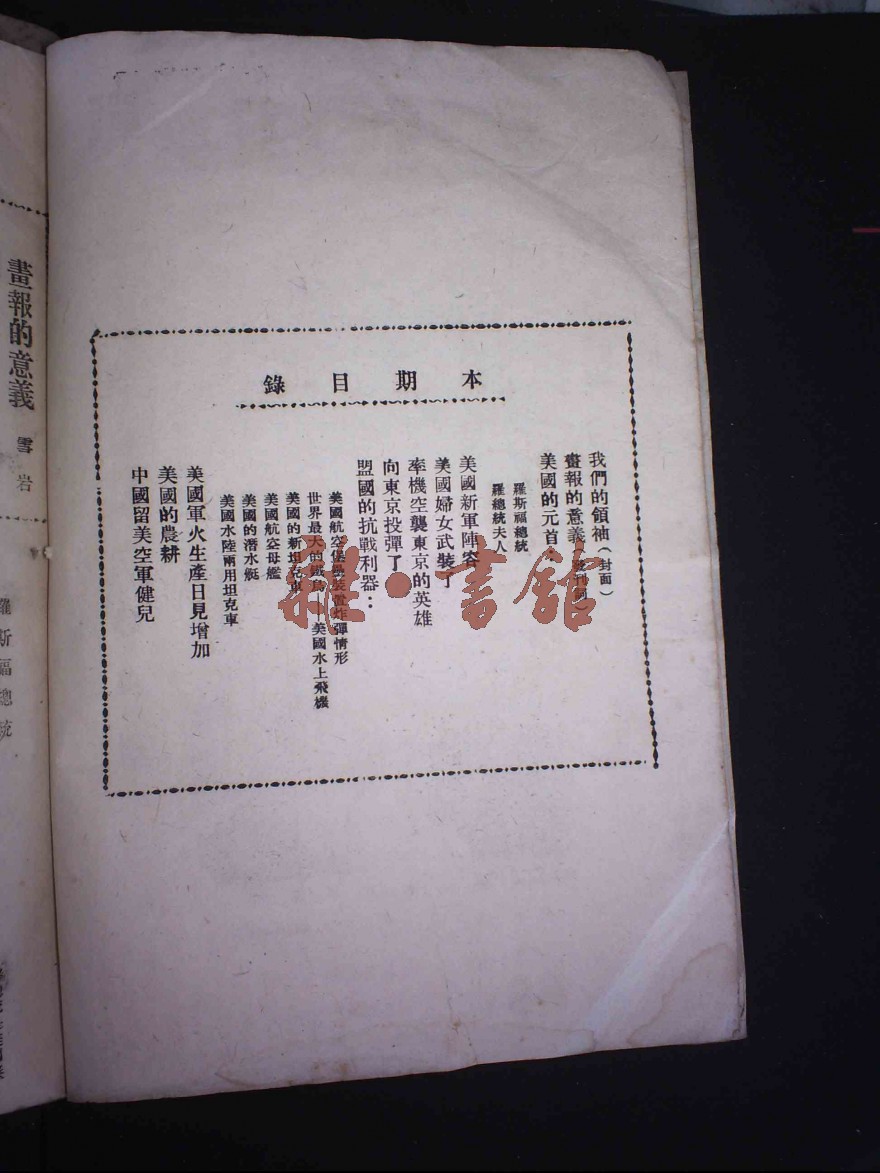 本期目錄
我們的領袖(封面)
畫報的意義(發刊詞)
美國的元首：
羅斯福總統
羅總統夫人
美國新軍陣容
美國婦女武裝了
率機空襲東京的英雄
向東京投彈了
盟國的抗戰利器：
美國航空堡壘裝置炸彈情形
世界最大的鐵鳥——美國水上飛機
美國的新坦克車
美國航空母艦
美國的潛水艇
美國水陸兩用坦克車
美國軍火生產日見增加
美國的農耕
中國留美空軍健兒
畫報的意義 雪岩
羅斯福總統
雜·書館